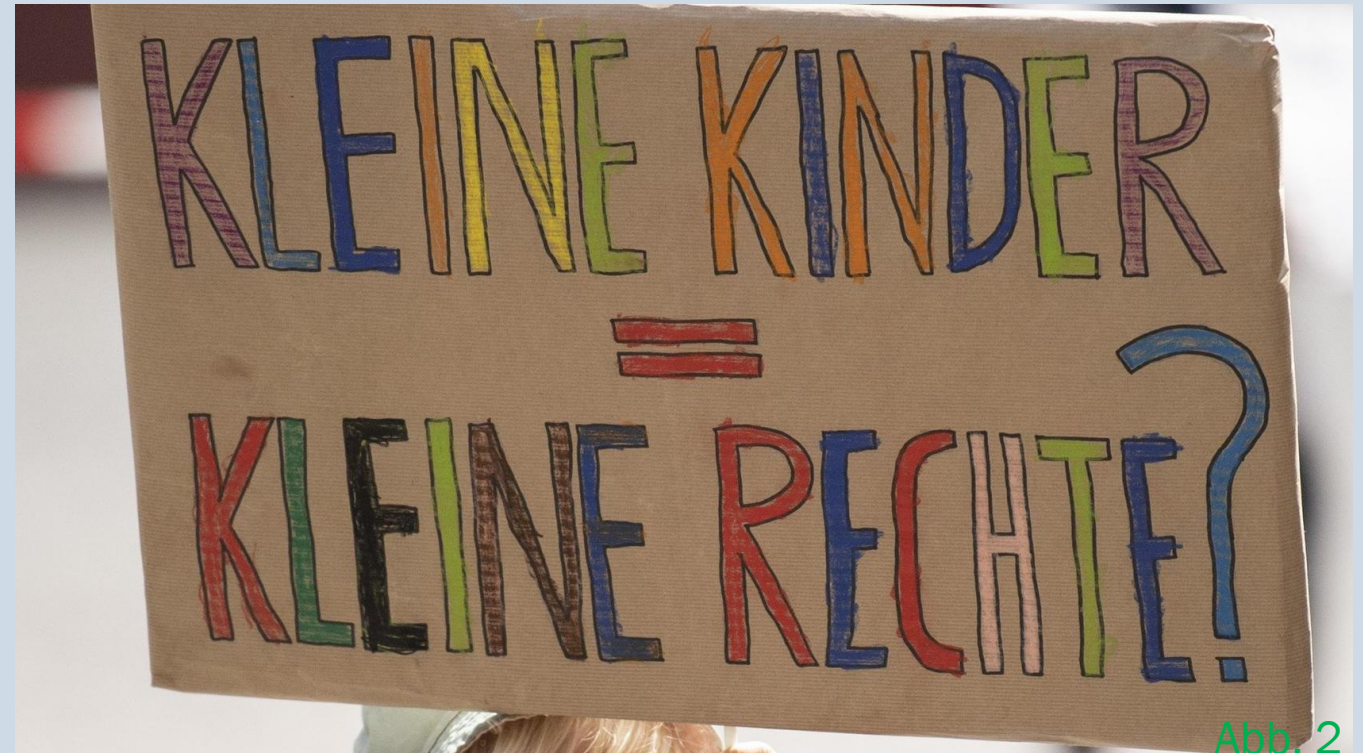 KLEINE KINDER
=
KLEINE RECHTE?
Abb. 2